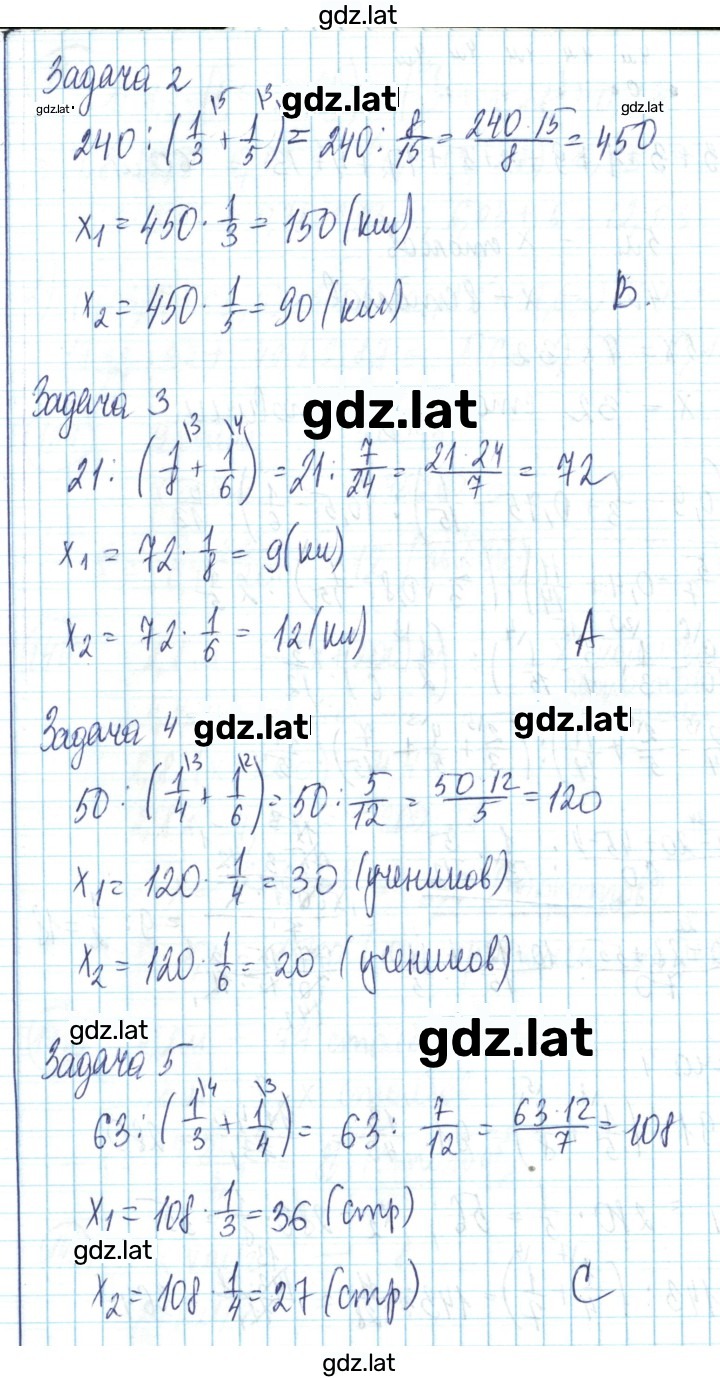 gdz.lat
Задача 2
gdz.lat
gdz.lat
gdz.lat
240 : (1/3 \5 + 1/5 \3) = 240 : 8/15 = 240·15/8 = 450
x₁ = 450 · 1/3 = 150 (км)
x₂ = 450 · 1/5 = 90 (км) B.
Задача 3 gdz.lat
21 : (1/8 \3 + 1/6 \4) = 21 : 7/24 = 21·24/7 = 72
x₁ = 72 · 1/8 = 9 (км)
x₂ = 72 · 1/6 = 12 (км) A
Задача 4 gdz.lat gdz.lat
50 : (1/4 \3 + 1/6 \2) = 50 : 5/12 = 50·12/5 = 120
x₁ = 120 · 1/4 = 30 (учеников)
x₂ = 120 · 1/6 = 20 (учеников)
gdz.lat gdz.lat
Задача 5
63 : (1/3 \4 + 1/4 \3) = 63 : 7/12 = 63·12/7 = 108
x₁ = 108 · 1/3 = 36 (стр)
gdz.lat
x₂ = 108 · 1/4 = 27 (стр) C
gdz.lat